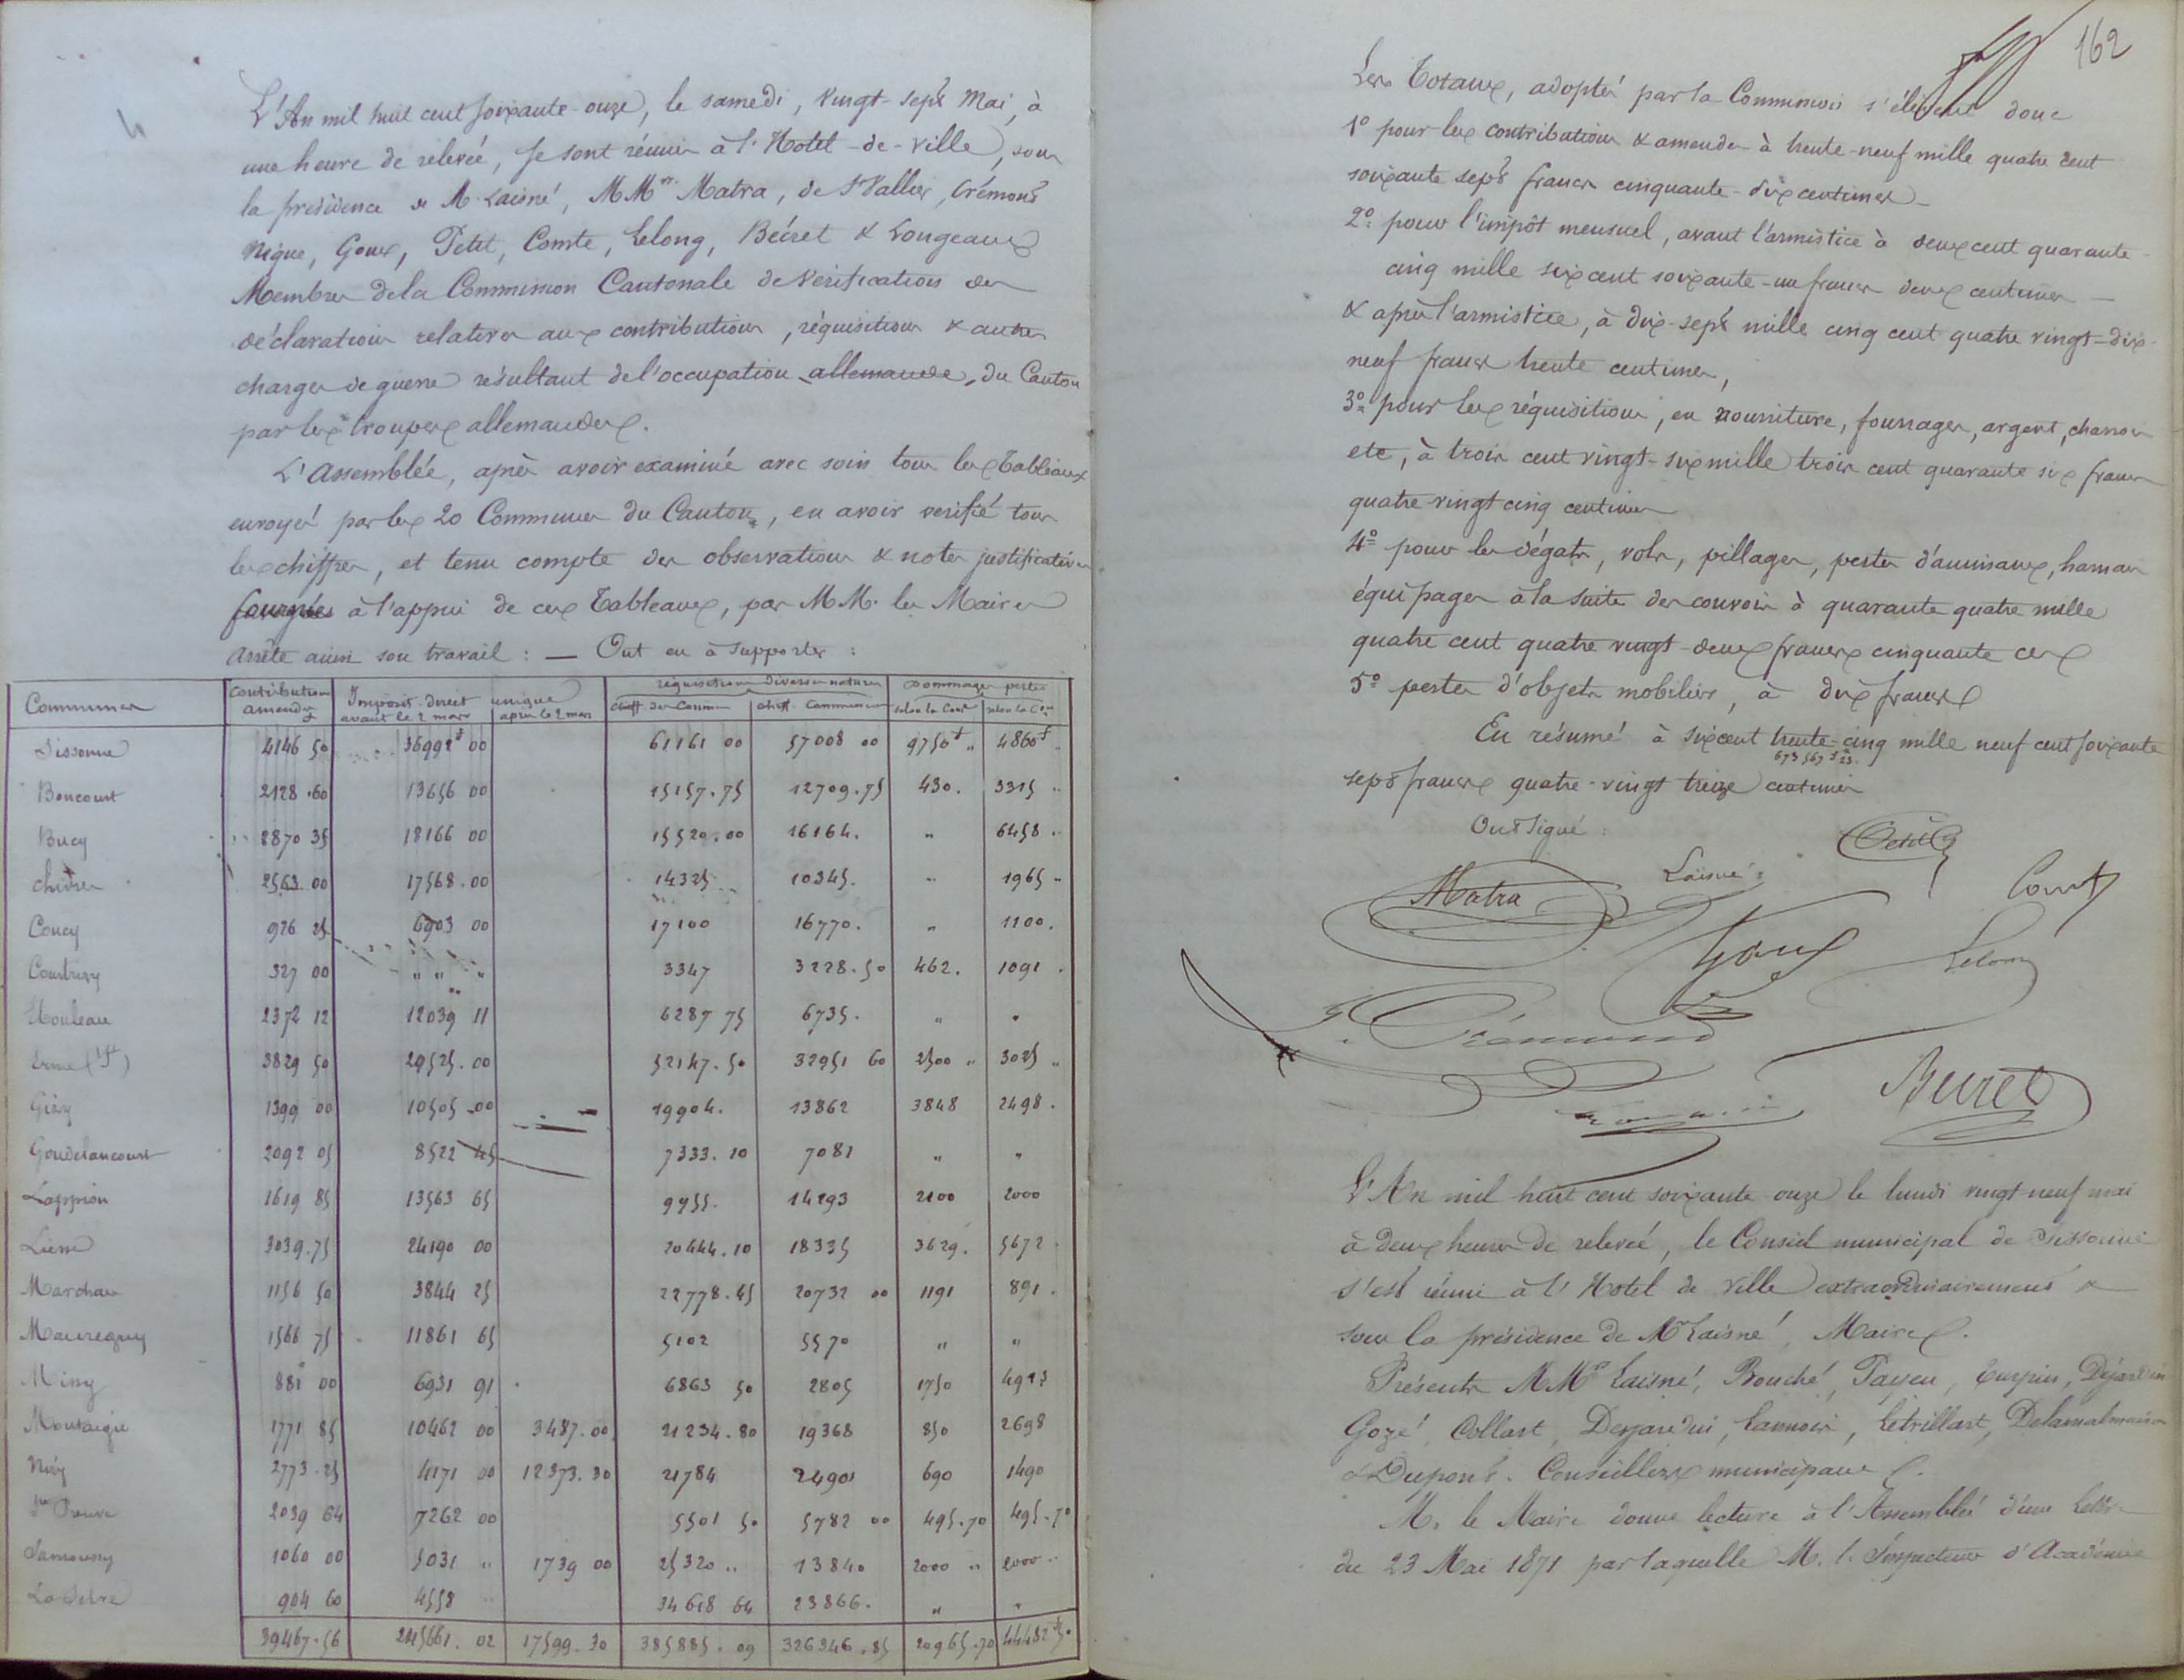 L'An mil huit cent soixante-onze, le samedi, vingt-sept Mai, à
une heure de relevée, se sont réunis à l'Hotel-de-Ville, sous
la présidence de M. Laisné, MMrs Matra, de St Vallier, Crémont
Nique, Goux, Petit, Comte, Lelong, Béeret & Longeaux
Membres de la Commission Cantonale de vérification des
déclarations relatives aux contributions, réquisitions & autres
charges de guerre résultant de l'occupation allemande, du Canton
par les troupes allemandes.
L'Assemblée, après avoir examiné avec soin tous les Tableaux
envoyés par les 20 Communes du Canton, en avoir vérifié tous
les chiffres, et tenu compte des observations & notes justificatives
fournies à l'appui de ces Tableaux, par MM. les Maires
Arrête ainsi son travail : — Ont eu à supporter :
Communes | Contributions amendes | Imposit. direct unique avant le 2 mars | après le 2 mars | réquisitions diverses natures chiff. des Comm | chiff. Commission | Dommages pertes selon la Comne | selon la Con
Sissonne 4146 50 36992f 00 61161 00 57008 00 9750f " 4860f
Boncourt 2128.60 13656 00 15157.75 12709.75 430. 3315 "
Bucy 2870 35 18166 00 15520.00 16164. " 6458.
Chivres 2563.00 17568.00 14325 10345. " 1965 "
Coucy 926 25 6903 00 17100 16770. " 1100.
Courtrizy 327 00 " " " 3347 3228.50 462. 1091.
Ebouleau 2372 12 12039 11 6287 75 6735. " "
Erme (St) 3829 50 29525.00 52147.50 32951 60 2500 " 3025 "
Gizy 1399 00 10505.00 19904. 13862 3848 2498.
Goudelancourt 2092 05 8522 45 7333.10 7081 " "
Lappion 1619 85 13563 65 9955. 14293 2100 2000
Liesse 3039.75 24190 00 20444.10 18335 3629. 5672.
Marchais 1156 50 3844 25 22778.45 20732 00 1191 891.
Mauregny 1566 75 11861 65 5102 5570 " "
Missy 881 00 6931 91 6863 50 2805 1750 4923
Montaigu 1771 85 10462 00 3487.00 21234.80 19368 850 2698
Nizy 2773.25 4171 00 12373.30 21784 24901 690 1490
Ste Preuve 2039 64 7262 00 5501 50 5782 00 495.70 495.70
Samoussy 1060 00 5031 " 1739 00 25320 " 13840 2000 " 2000 "
La Selve 904 60 4558 34618 64 23866. " "
39467.56 245661.02 17599.30 385885.09 326346.85 20965.70 44482f50
162
Les Totaux, adoptés par la Commission s'élèvent donc
1° pour les contributions & amendes à trente-neuf mille quatre cent
soixante sept francs cinquante-six centimes —
2° pour l'impôt mensuel, avant l'armistice à deux cent quarante-
cinq mille six cent soixante-un francs deux centimes —
& après l'armistice, à dix-sept mille cinq cent quatre vingt-dix-
neuf francs trente centimes,
3° pour les réquisitions, en nourriture, fourrages, argent, charrois
etc, à trois cent vingt-six mille trois cent quarante six francs
quatre-vingt cinq centimes
4° pour les dégats, vols, pillages, pertes d'animaux, harnais
équipages à la suite des convois à quarante quatre mille
quatre cent quatre vingt-deux francs cinquante ces
5° pertes d'objets mobiliers, à dix francs
En résumé à six cent trente-cinq mille neuf cent soixante
673,567f23.
sept francs quatre-vingt treize centimes
Ont signé :
Petit
Laisné
Matra
Comte
Goux
Lelong
Crémond
Beuret
L'An mil huit cent soixante-onze le lundi vingt-neuf mai
à deux heures de relevée, le Conseil municipal de Sissonne
s'est réuni à l'Hotel de Ville extraordinairement &
sous la présidence de Mr Laisné, Maire.
Présents MMrs Laisné, Bouché, Payen, Turpin, Déjardin
Gozé, Collart, Desjardins, Lannois, Létrillart, Delamalmaison
& Dupont. Conseillers municipaux.
M. le Maire donne lecture à l'Assemblée d'une lettre
du 23 Mai 1871 par laquelle M. l'Inspecteur d'Académie